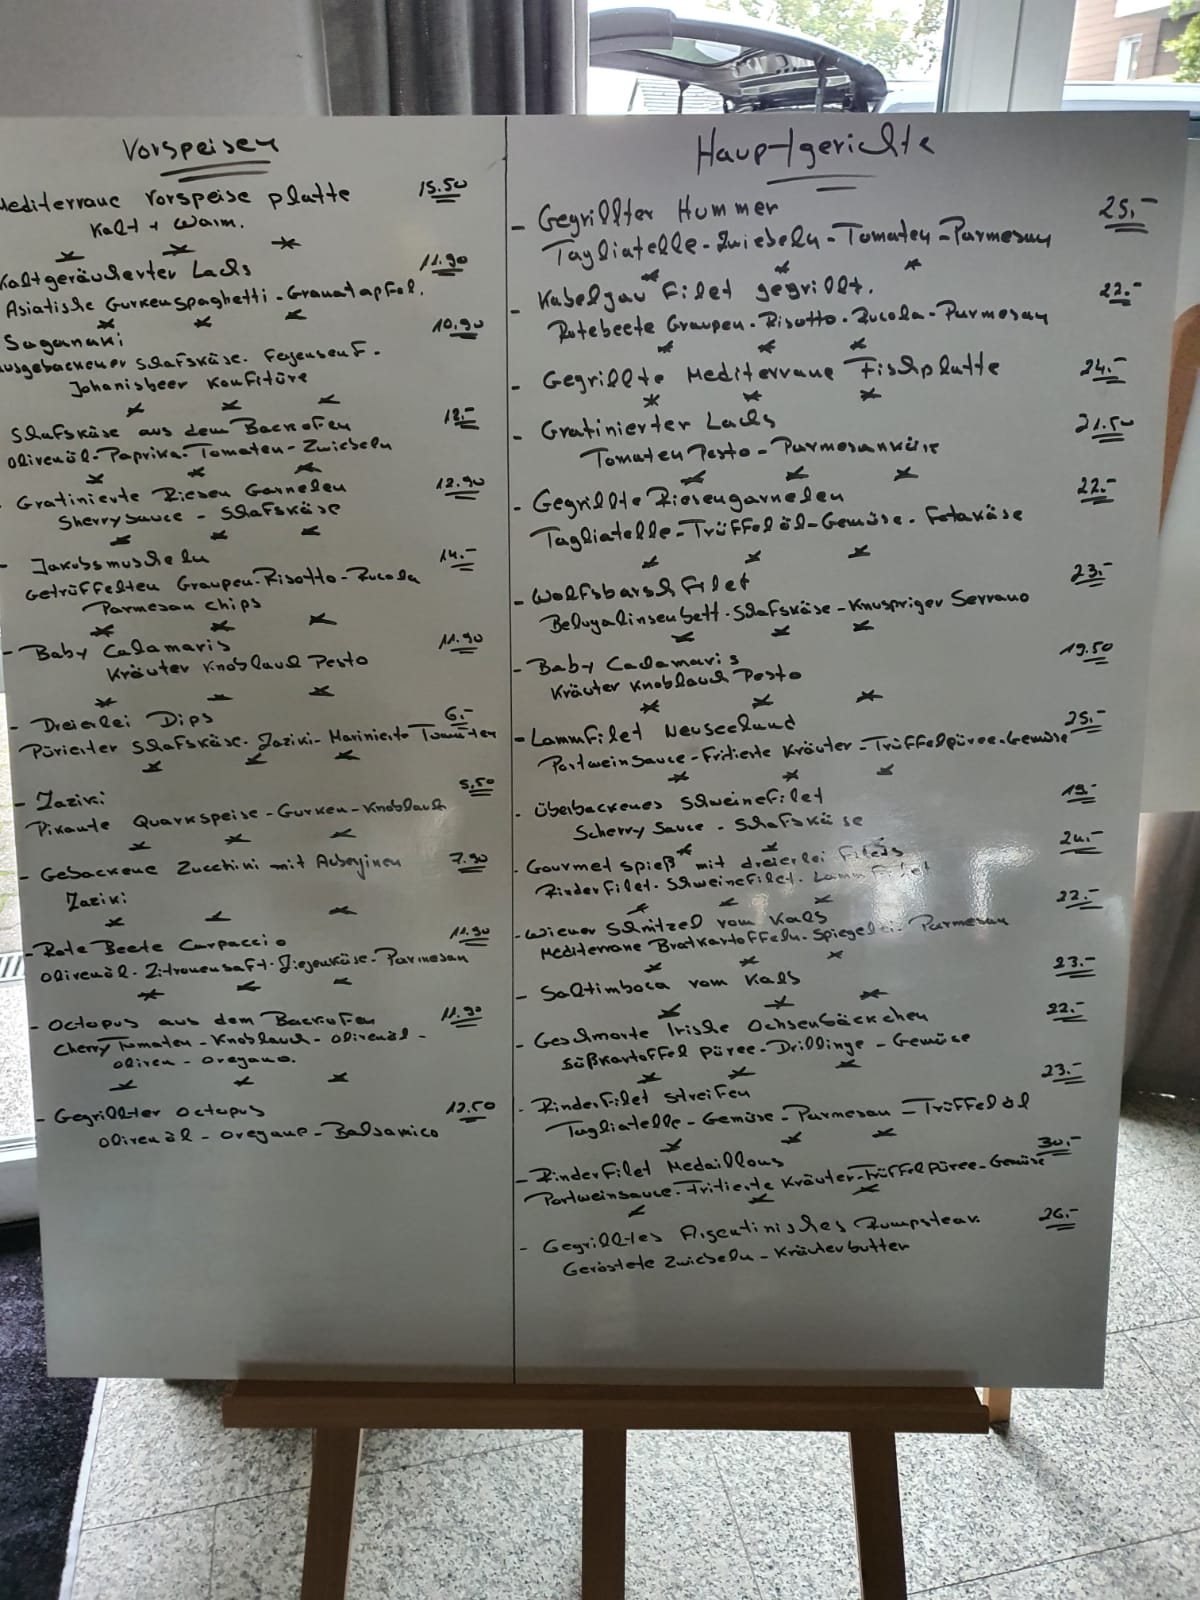 Vorspeisen
Mediterrane Vorspeise platte 15.50
Kalt + Warm.
Kaltgeräucherter Lachs 11.90
Asiatische Gurkenspaghetti - Granatapfel.
Saganaki 10.90
ausgebackener Schafskäse. Feigensenf.
Johanisbeer Konfitüre
Schafskäse aus dem Backofen 12.-
Olivenöl-Paprika-Tomaten-Zwiebeln
Gratinierte Riesen Garnelen 12.90
Sherrysauce - Schafskäse
- Jakobsmuscheln 14.-
Getrüffelten Graupen-Risotto-Rucola
Parmesan chips
- Baby Calamaris 11.90
Kräuter Knoblauch Pesto
- Dreierlei Dips 6.-
Pürierter Schafskäse. Zaziki- Marinierte Tomaten
- Zaziki 5,50
Pikante Quarkspeise - Gurken - Knoblauch
- Gebackene Zucchini mit Auberginen 7.90
Zaziki
- Rote Beete Carpaccio 11.90
Olivenöl - Zitronensaft - Ziegenkäse - Parmesan
- Octopus aus dem Backofen 11.90
Cherry Tomaten - Knoblauch - Olivenöl -
Oliven - Oregano.
- Gegrillter Octopus 12.50
Olivenöl - Oregano - Balsamico
Hauptgerichte
- Gegrillter Hummer 25,-
Tagliatelle-Zwiebeln-Tomaten-Parmesan
- Kabelgau Filet gegrillt. 22.-
Rotebeete Graupen-Risotto-Rucola-Parmesan
- Gegrillte Mediterrane Fischplatte 24.-
- Gratinierter Lachs 21.50
Tomaten Pesto - Parmesankäse
- Gegrillte Riesengarnelen 22.-
Tagliatelle-Trüffelöl-Gemüse-Fetakäse
- Wolfsbarsch Filet 23.-
Belugalinsenbett-Schafskäse-Knuspriger Serrano
- Baby Calamaris 19.50
Kräuter Knoblauch Pesto
- Lammfilet Neuseeland 25.-
Portweinsauce-Fritierte Kräuter-Trüffelpüree-Gemüse
- Überbackenes Schweinefilet 19.-
Scherry Sauce - Schafskäse
- Gourmet spieß mit dreierlei Filets 24.-
Rinderfilet. Schweinefilet. Lammfilet
- Wiener Schnitzel vom Kalb 22.-
Mediterrane Bratkartoffeln. Spiegelei- Parmesan
- Saltimboca vom Kalb 23.-
- Geschmorte Irische Ochsenbäckchen 22.-
Süßkartoffel püree-Drillinge - Gemüse
- Rinderfilet streifen 23.-
Tagliatelle - Gemüse - Parmesan - Trüffelöl
- Rinderfilet Medaillons 30.-
Portweinsauce-Fritierte Kräuter-Trüffelpüree-Gemüse
- Gegrilltes Argentinisches Rumpsteak 26.-
Geröstete Zwiebeln - Kräuterbutter